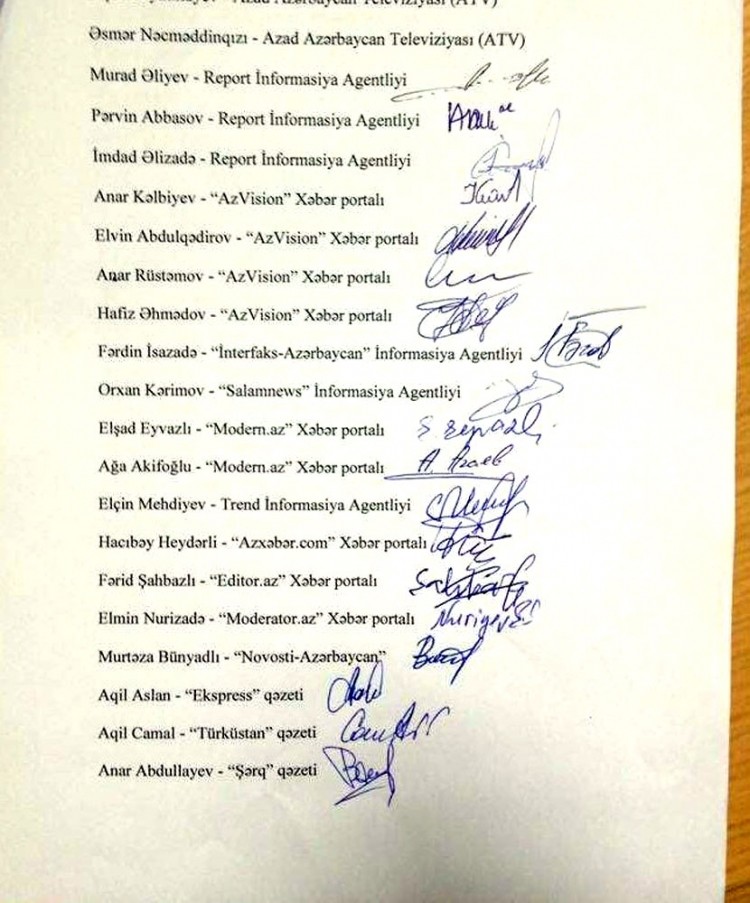 Azad Azərbaycan Televiziyası (ATV)
Əsmər Nəcməddinqızı - Azad Azərbaycan Televiziyası (ATV)
Murad Əliyev - Report İnformasiya Agentliyi
Pərvin Abbasov - Report İnformasiya Agentliyi
İmdad Əlizadə - Report İnformasiya Agentliyi
Anar Kəlbiyev - “AzVision” Xəbər portalı
Elvin Abdulqədirov - “AzVision” Xəbər portalı
Anar Rüstəmov - “AzVision” Xəbər portalı
Hafiz Əhmədov - “AzVision” Xəbər portalı
Fərdin İsazadə - “İnterfaks-Azərbaycan” İnformasiya Agentliyi
Orxan Kərimov - “Salamnews” İnformasiya Agentliyi
Elşad Eyvazlı - “Modern.az” Xəbər portalı
Ağa Akifoğlu - “Modern.az” Xəbər portalı
Elçin Mehdiyev - Trend İnformasiya Agentliyi
Hacıbəy Heydərli - “Azxəbər.com” Xəbər portalı
Fərid Şahbazlı - “Editor.az” Xəbər portalı
Elmin Nurizadə - “Moderator.az” Xəbər portalı
Murtəza Bünyadlı - “Novosti-Azərbaycan”
Aqil Aslan - “Ekspress” qəzeti
Aqil Camal - “Türküstan” qəzeti
Anar Abdullayev - “Şərq” qəzeti